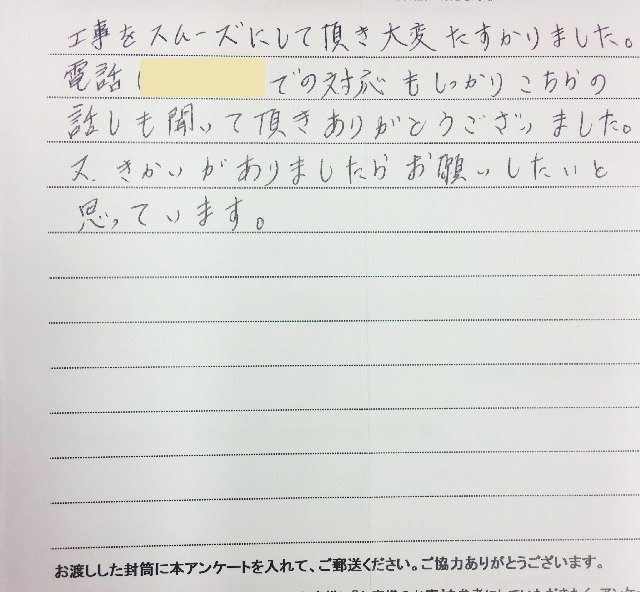 工事をスムーズにして頂き大変たすかりました。
電話(　での対応もしっかりこちらの
話しも聞いて頂きありがとうございました。
又、きかいがありましたらお願いしたいと
思っています。
お渡しした封筒に本アンケートを入れて、ご郵送ください。ご協力ありがとうございます。